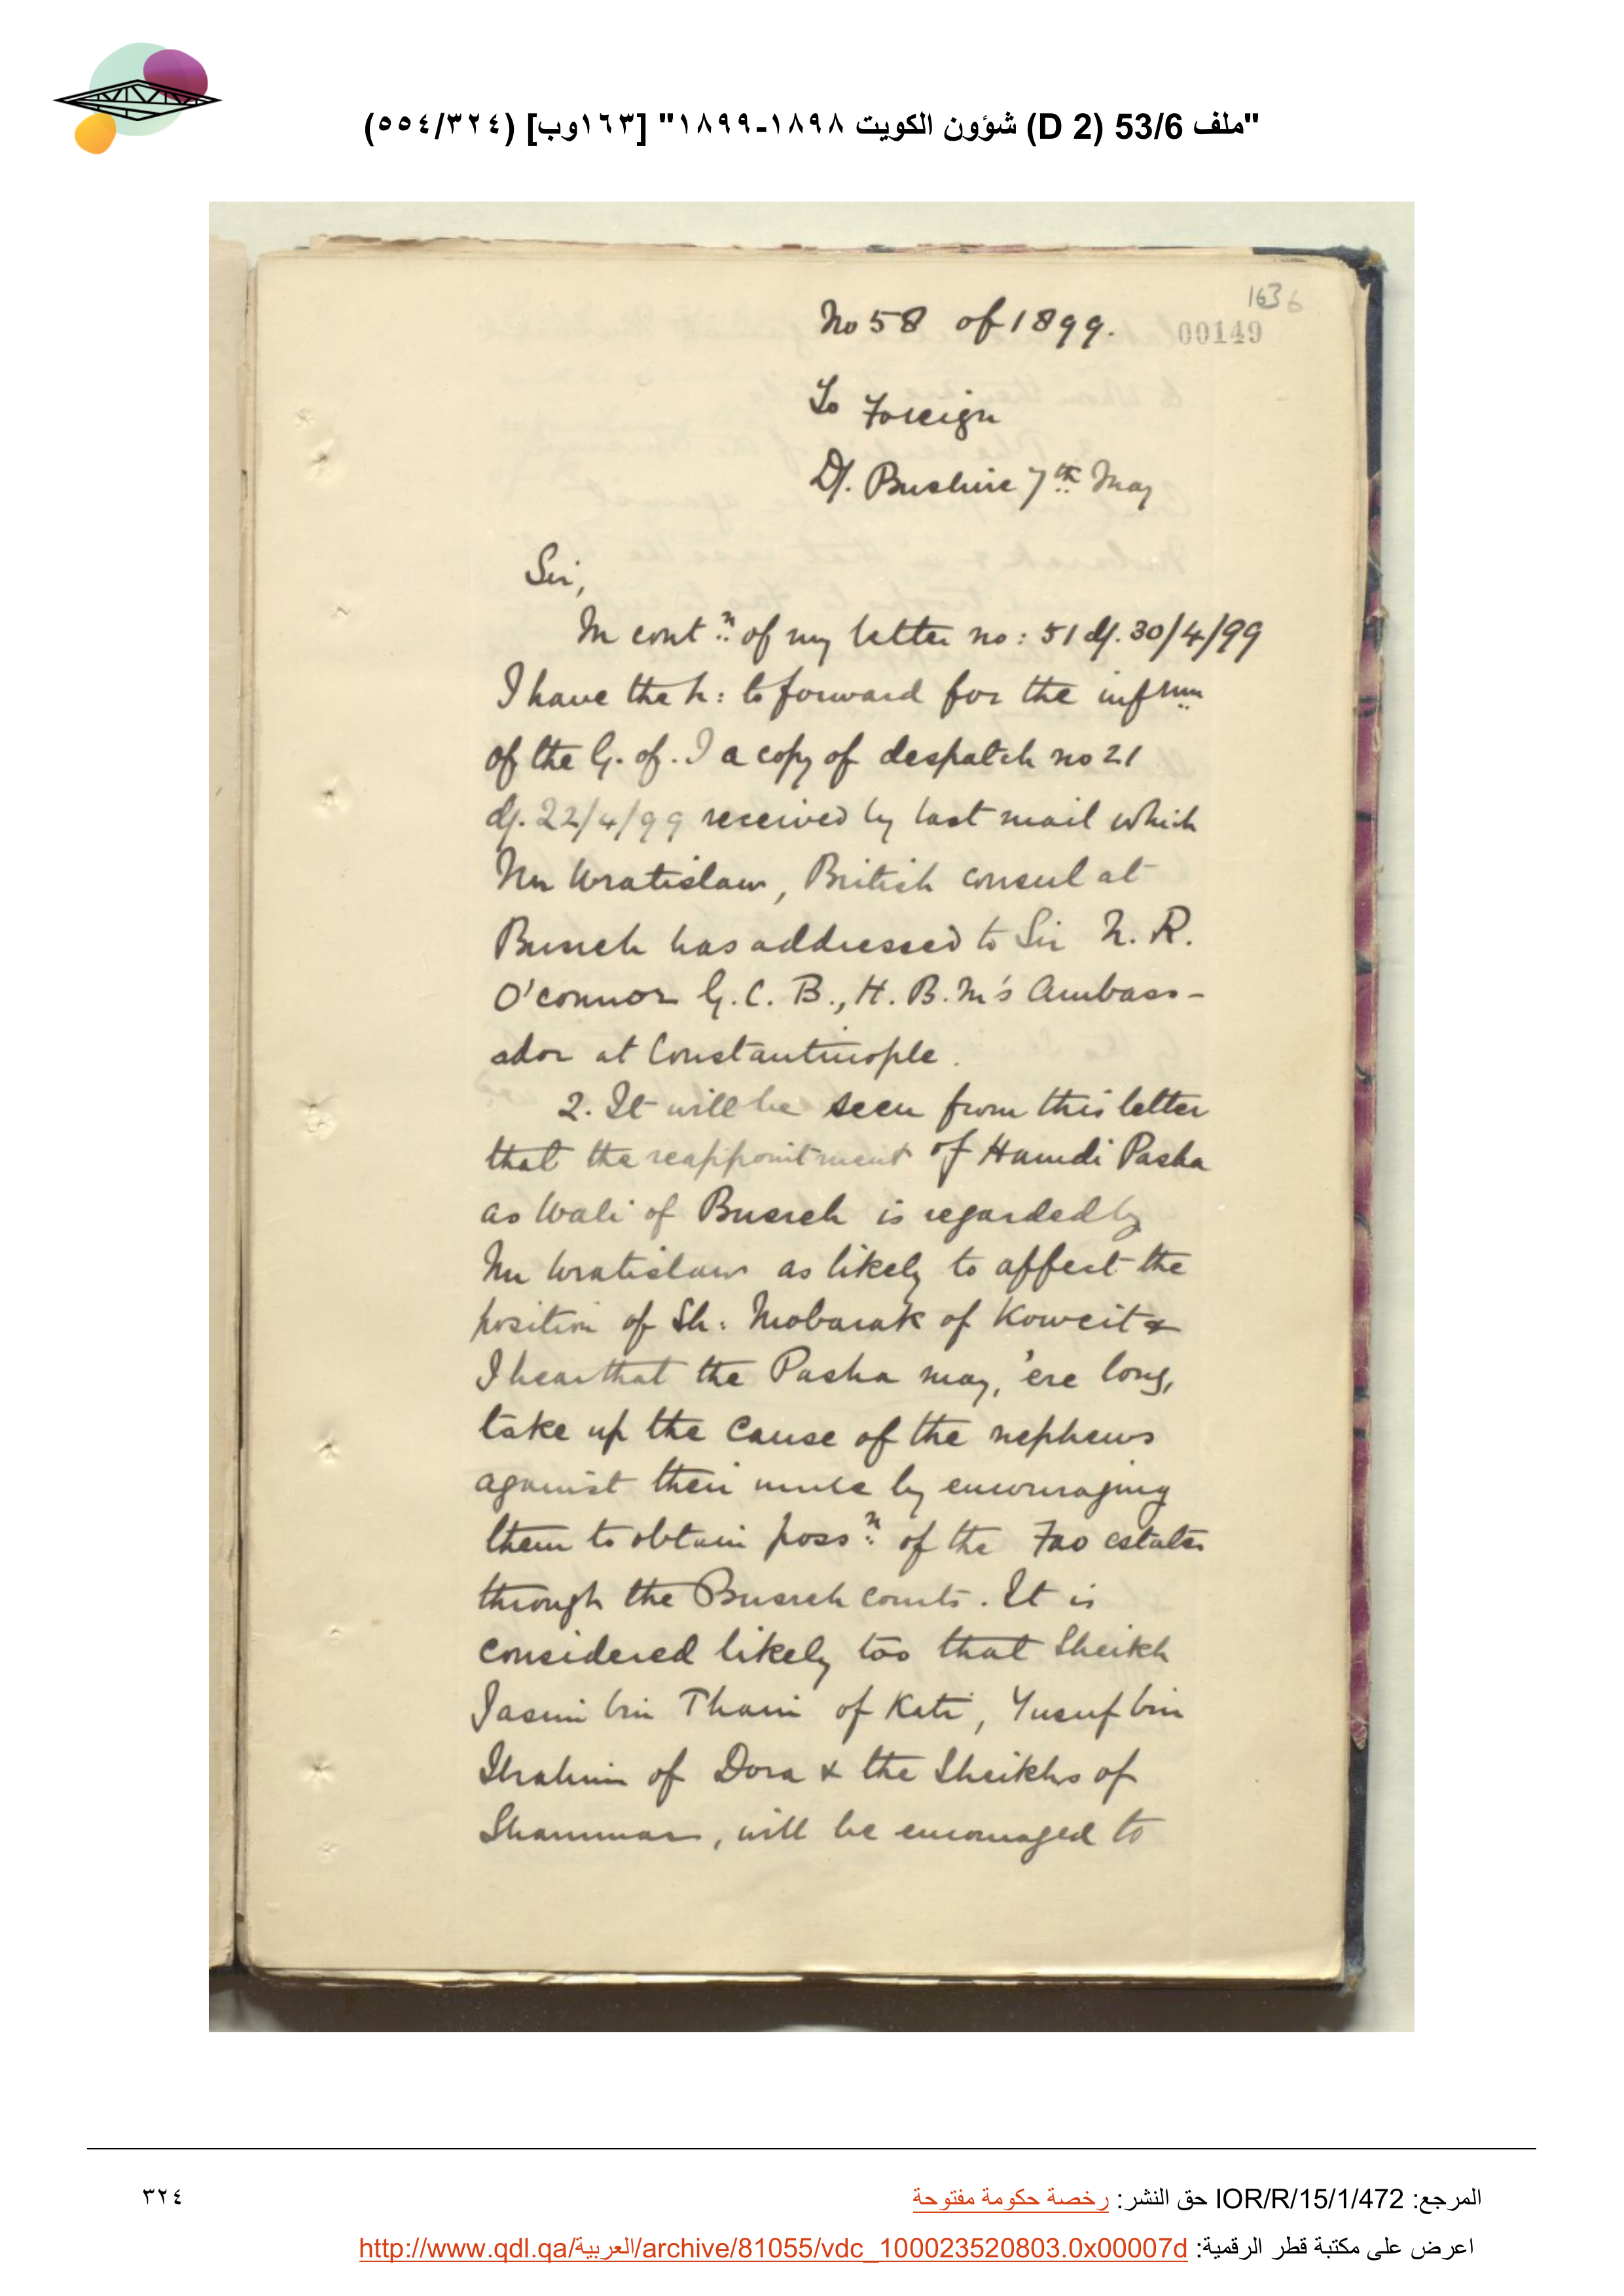 "ملف 53/6 (D 2) شؤون الكويت ١٨٩٨-١٨٩٩" [١٦٣وب] (٥٥٤/٣٢٤)
163 6
00149
No 58 of 1899.
To Foreign
D/. Bushire 7th May
Sir,
In contn of my letter no: 51 d/. 30/4/99
I have the h: to forward for the infrmn
of the G. of. I a copy of despatch no 21
d/. 22/4/99 received by last mail which
Mr Wratislaw, British consul at
Busreh has addressed to Sir N. R.
O'connor G. C. B., H. B. M's Ambass-
ador at Constantinople.
2. It will be seen from this letter
that the reappointment of Hamdi Pasha
as Wali of Busreh is regarded by
Mr Wratislaw as likely to affect the
position of Sh: Mobarak of Koweit &
I hear that the Pasha may, 'ere long,
take up the cause of the nephews
against their uncle by encouraging
them to obtain possn of the Fao estates
through the Busreh courts. It is
considered likely too that Sheikh
Jasim bin Thani of Katr, Yusuf bin
Ibrahim of Dora & the Sheikhs of
Shammar, will be encouraged to
المرجع: IOR/R/15/1/472 حق النشر: رخصة حكومة مفتوحة
٣٢٤
اعرض على مكتبة قطر الرقمية: http://www.qdl.qa/العربية/archive/81055/vdc_100023520803.0x00007d